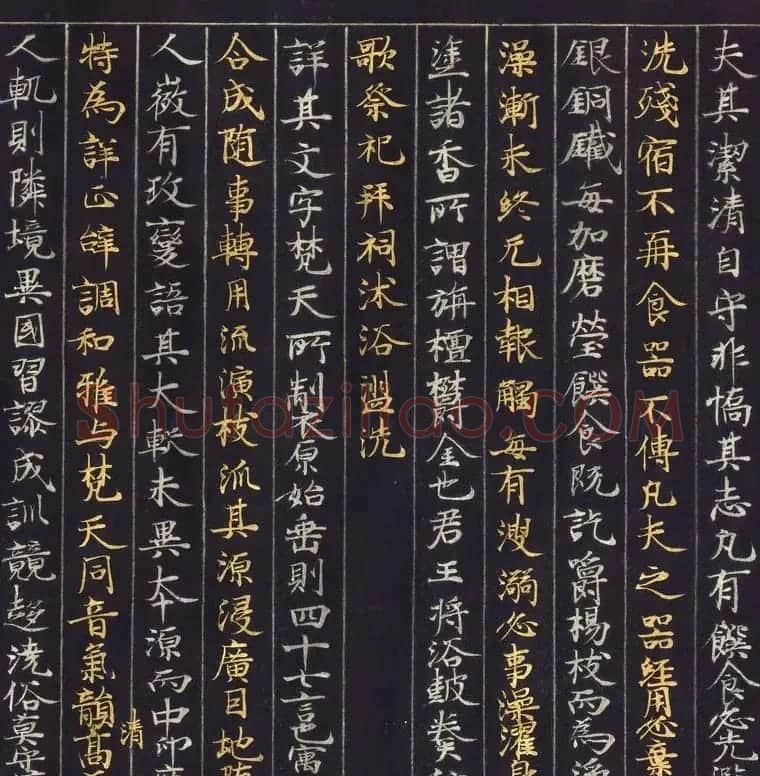 夫其潔清自守非憍其志凡有饌食必先
洗殘宿不再食器不傳凡夫之器經用必棄
銀銅鐵每加磨瑩饌食既訖嚼楊枝而為
澡漱未終无相報觸每有溲溺必事澡濯
塗諸香所謂旃檀欝金也君王將浴鼓奏
歌祭祀拜祠沐浴盥洗
詳其文字梵天所制原始垂則四十七言寓
合成随事轉用流演枝派其源浸廣因地随
人微有改變語其大較未異本源而中印度
特為詳正辞調和雅与梵天同音氣韻清高
人軌則隣境異國習謬成訓競趍澆俗莫守